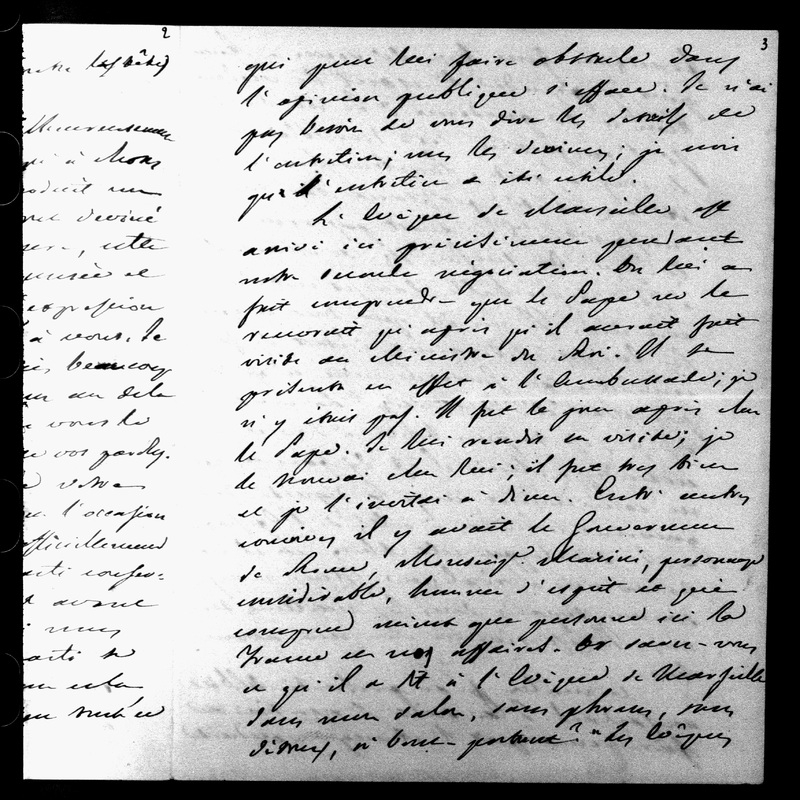 2
les bêtes
heureusement
qui à Mons
deviné
cette
pensée et
expression
à vous. Je
beaucoup
au delà
vous le
vos paroles.
votre
l'occasion
officiellement
parti conser-
avant
parti se
3
qui peut lui faire obstacle dans
l'opinion publique s'efface. Je n'ai
pas besoin de vous dire les détails de
l'entretien; vous les devinez; je crois
que l'entretien a été utile.
L'Évêque de Marseille est
arrivé ici précisément pendant
notre seconde négociation. On lui a
fait comprendre que le Pape ne le
recevrait qu'après qu'il aurait fait
visite au Ministre du Roi. Il se
présenta en effet à l'Ambassade; je
n'y étais pas. Il fut le jour après chez
le Pape. Je lui rendis sa visite; je
le trouvai chez lui; il fut très bien
et je l'invitai à dîner. Entre autres
convives il y avait le Gouverneur
de Rome, Monsieigr. Marini, personnage
considérable, homme d'esprit et qui
comprend mieux que personne ici la
France et nos affaires. Or savez-vous
ce qu'il a dit à l'Évêque de Marseille
dans mon salon, sans phrases, sans
détours, à bout-portant? "Les Évêques